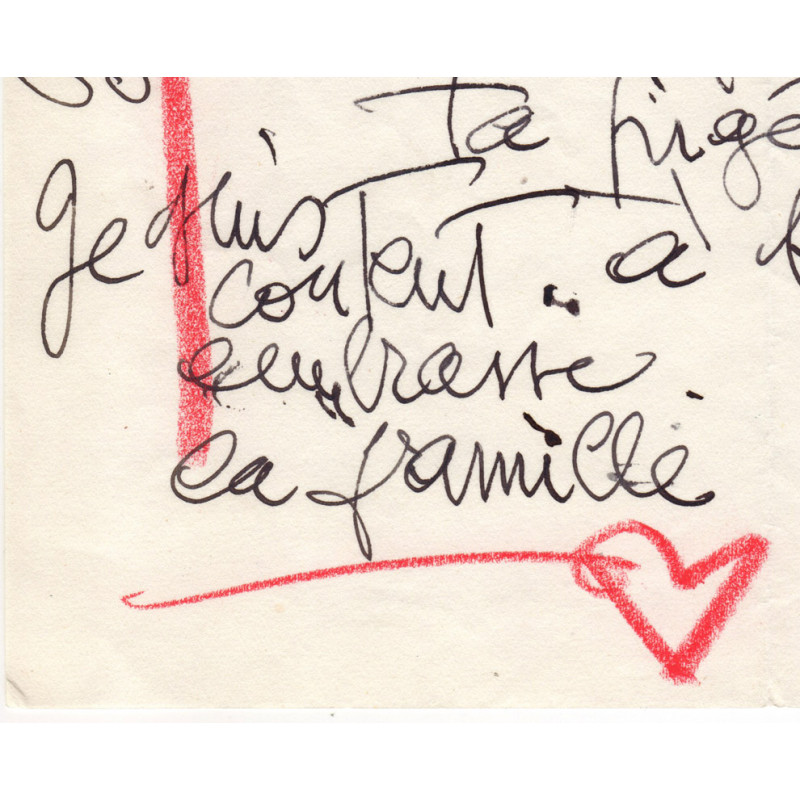 Ta
Je suis
content. à
embrasse
la famille